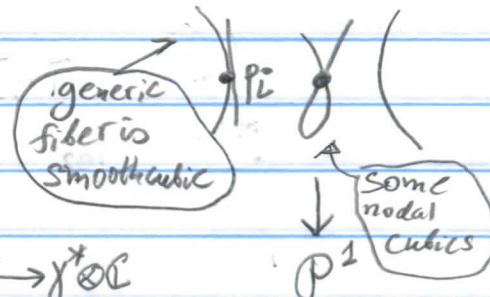 generic
fiber is
smooth cubic
Pi
some
nodal
cubics
→ γ* ⊗ ℂ
P¹